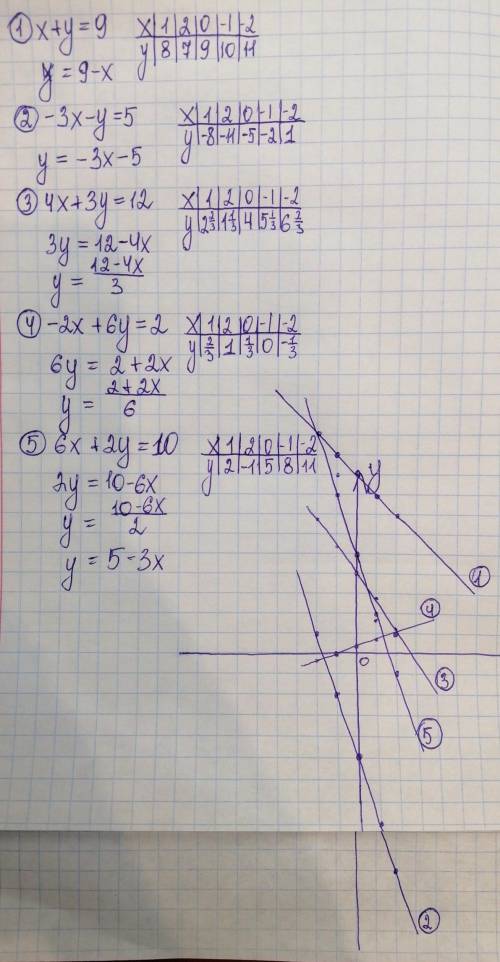 ① x+y=9
x | 1 | 2 | 0 | -1 | -2
y | 8 | 7 | 9 | 10 | 11
y = 9-x
② -3x-y=5
x | 1 | 2 | 0 | -1 | -2
y | -8 | -11 | -5 | -2 | 1
y = -3x-5
③ 4x+3y=12
x | 1 | 2 | 0 | -1 | -2
y | 2 2/3 | 1 1/3 | 4 | 5 1/3 | 6 2/3
3y = 12-4x
y = 12-4x / 3
④ -2x+6y=2
x | 1 | 2 | 0 | -1 | -2
y | 2/3 | 1 | 1/3 | 0 | -1/3
6y = 2+2x
y = 2+2x / 6
⑤ 6x+2y=10
x | 1 | 2 | 0 | -1 | -2
y | 2 | -1 | 5 | 8 | 11
2y = 10-6x
y = 10-6x / 2
y = 5-3x
y
①
④
0
③
⑤
②